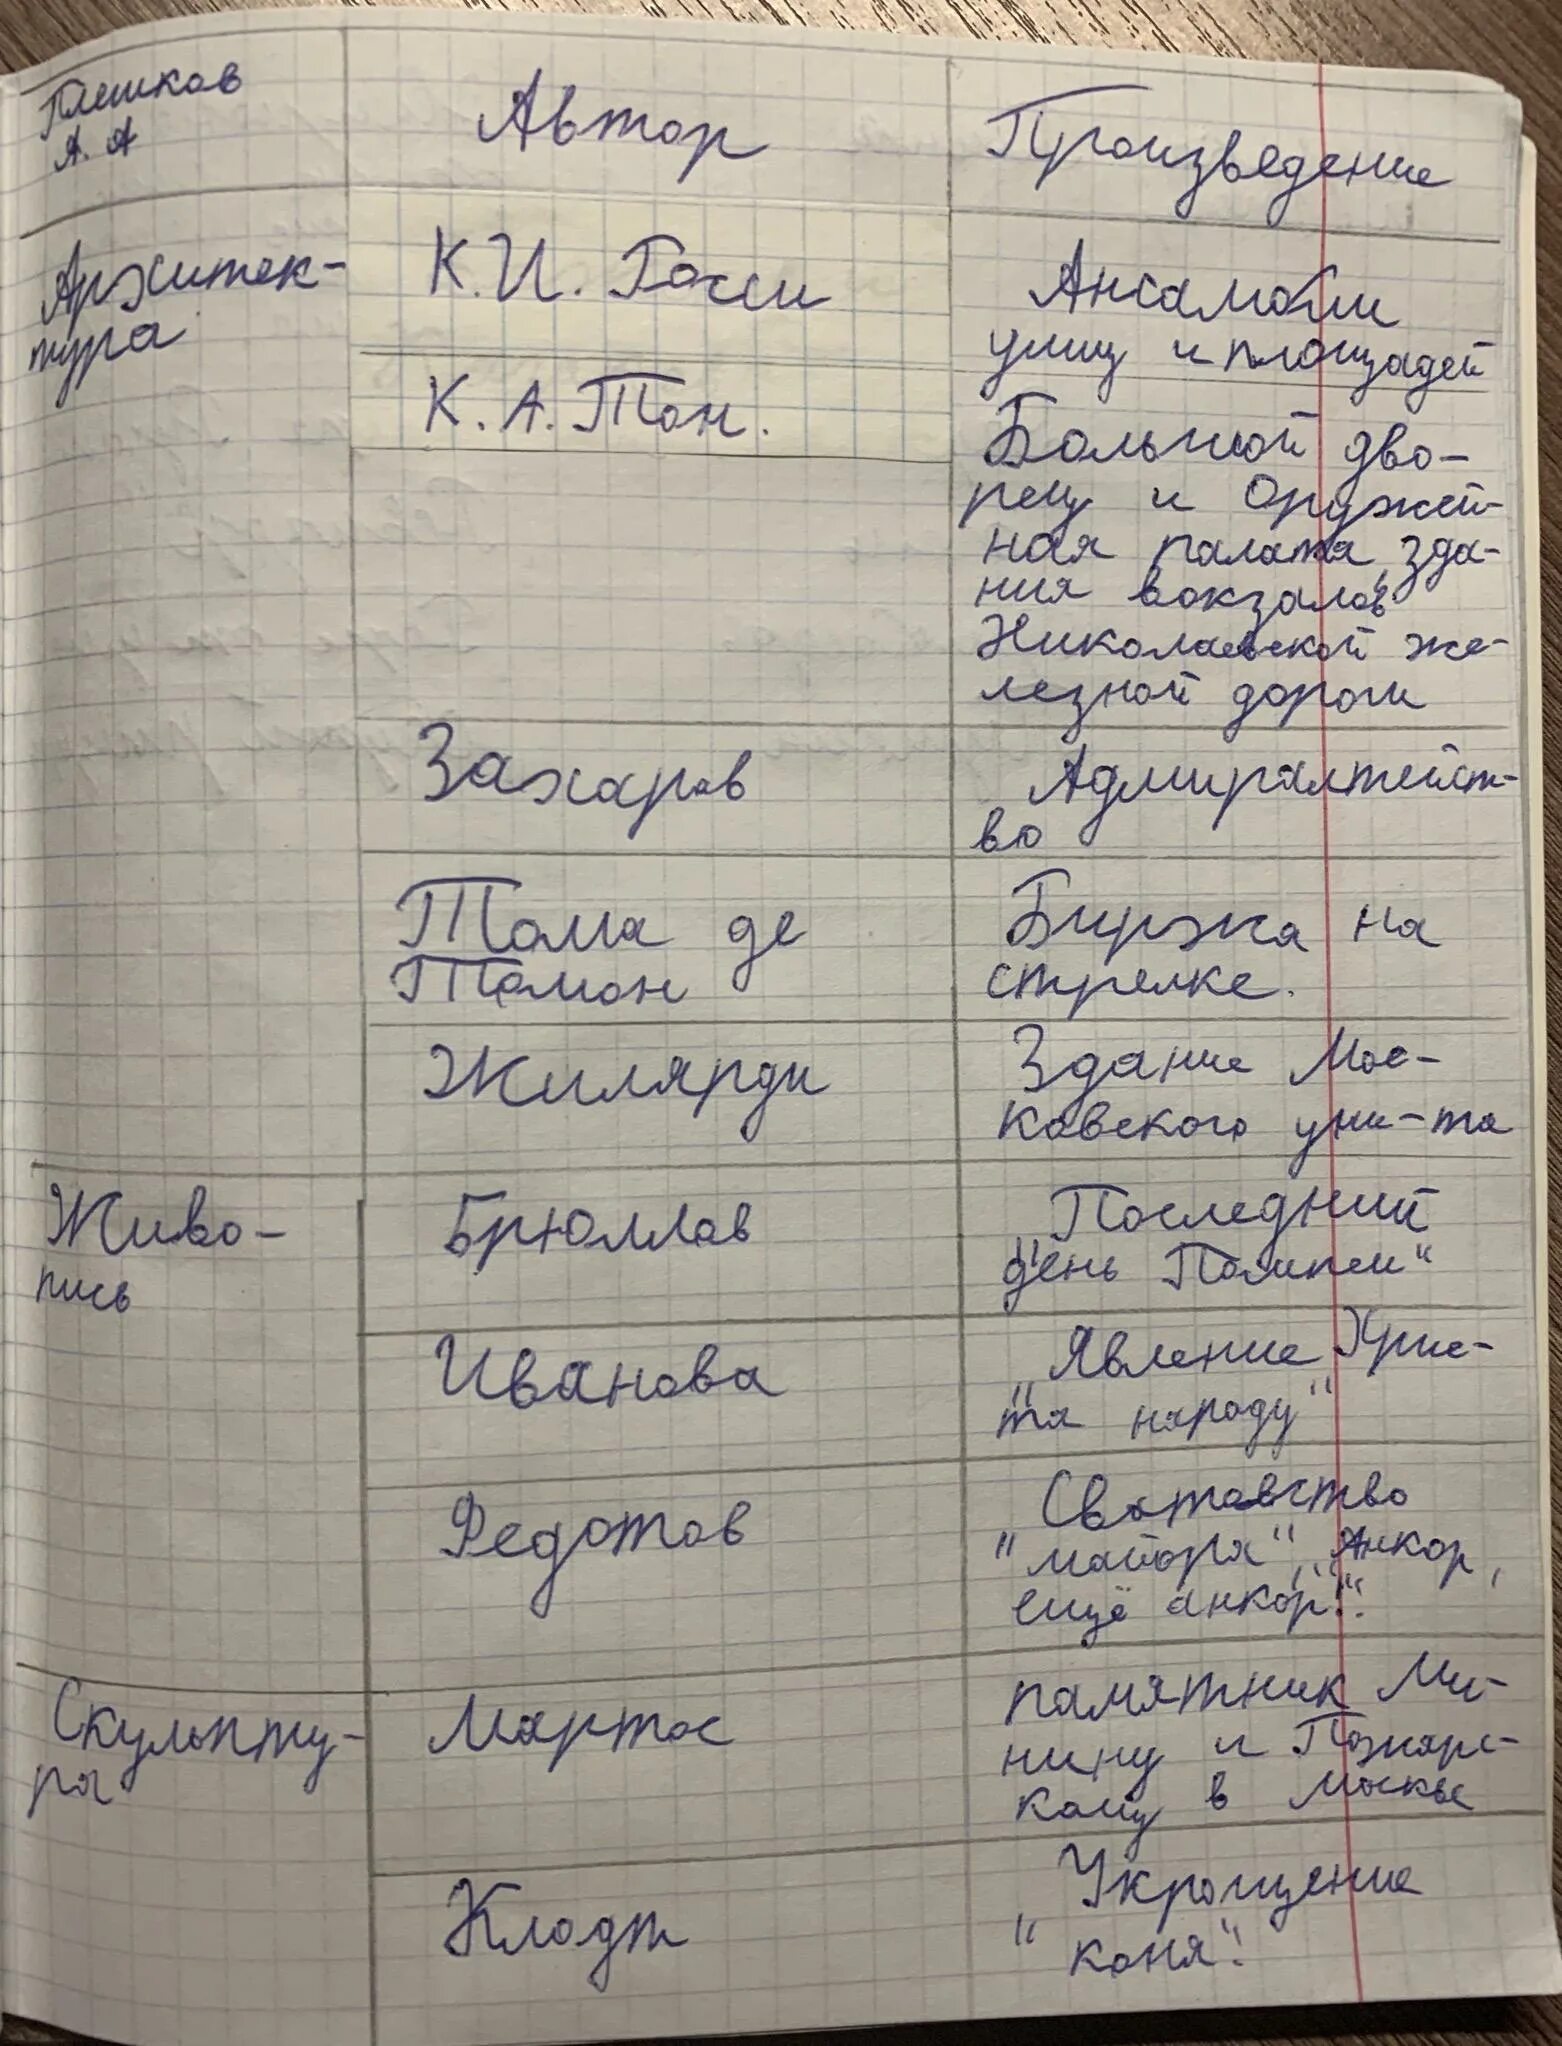 Плешков
А. А
Автор
Произведение
Архитек-
тура
К.И. Росси
Ансамбли
улиц и площадей
К.А.Тон.
Большой дво-
рец и Оружей-
ная палата, зда-
ния вокзалов
Николаевской же-
лезной дороги
Захаров
Адмиралтейст-
во
Тома де
Томон
Биржа на
стрелке.
Жилярди
Здание Мос-
ковского уни-та
Живо-
пись
Брюллов
Последний
"день Помпеи"
Иванова
"Явление Хрис-
та народу"
Федотов
Сватовство
"майора", "Анкор,
ещё анкор!".
Скульпту-
ра
Мартос
памятник Ми-
нину и Пожарс-
кому в Москве
Клодт
Укрощение
" коня".